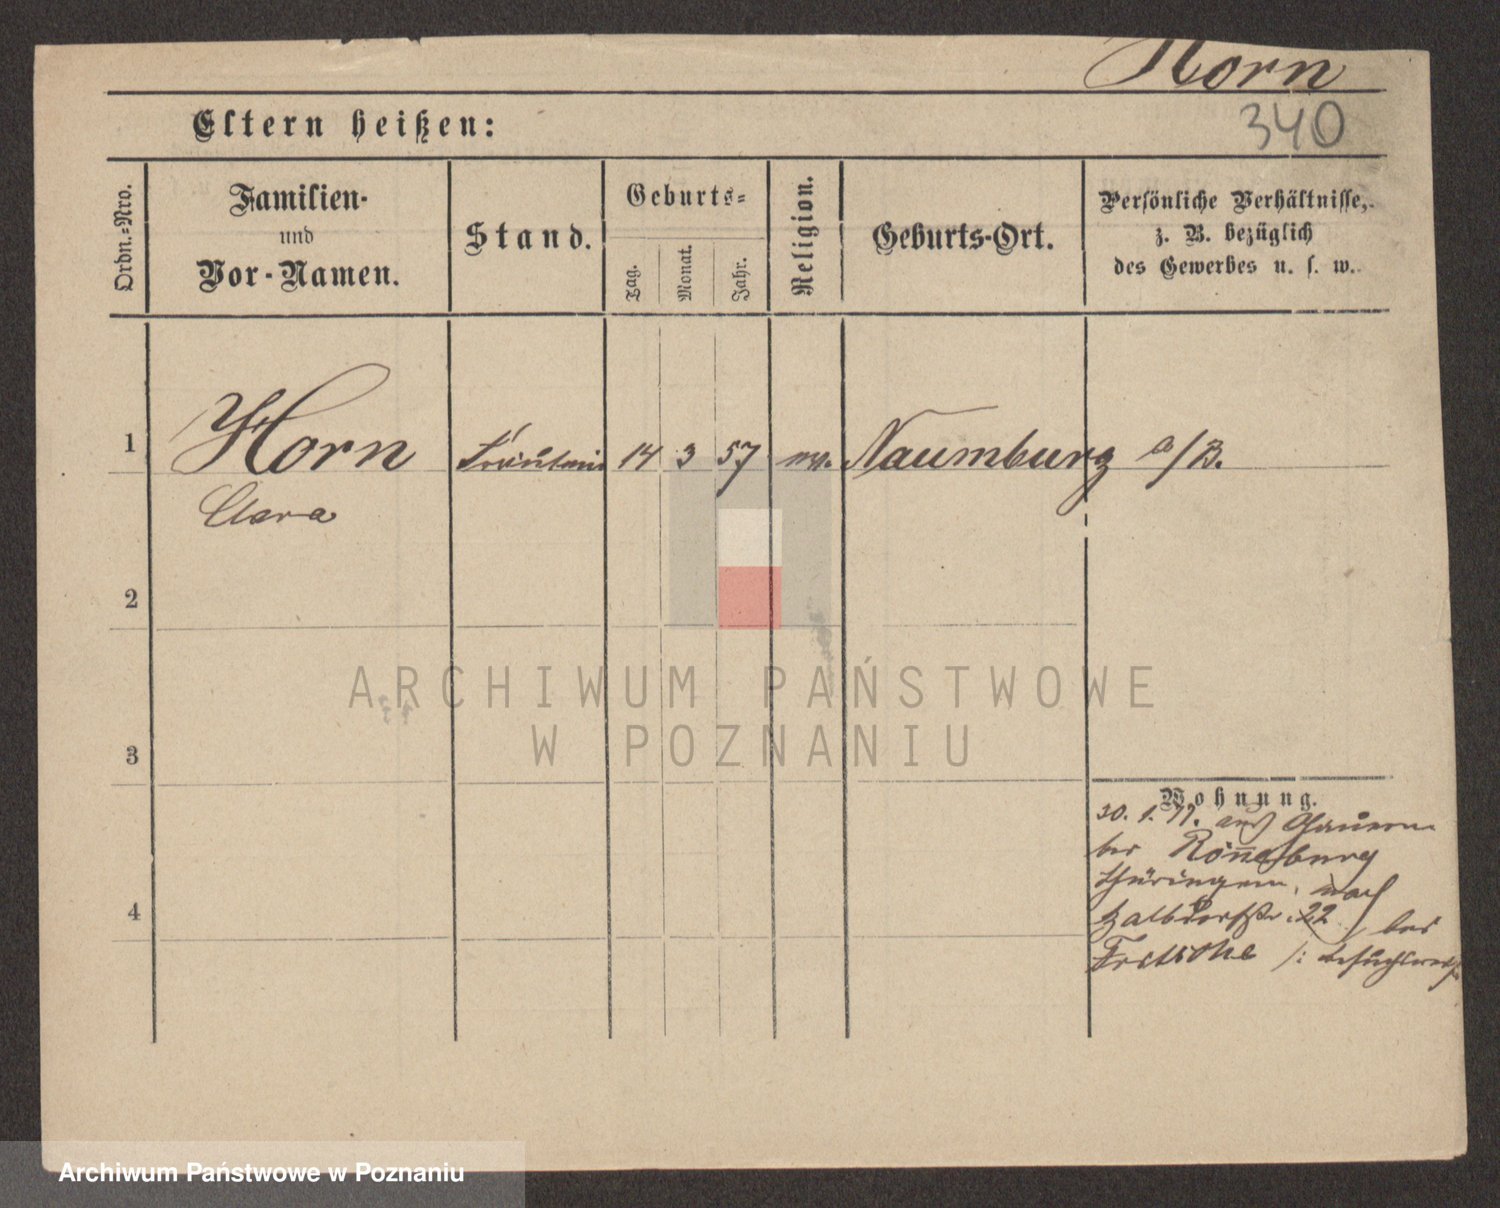 Horn
340
Eltern heißen:
Ordn.-Nro.
Familien-
und
Vor-Namen.
Stand.
Geburts-
Tag.
Monat.
Jahr.
Religion.
Geburts-Ort.
Persönliche Verhältnisse,
z. B. bezüglich
des Gewerbes u. s. w.
1
Horn
Fräulein
14
3
57
Naumburg a/B.
Clara
2
3
4
Wohnung.
30. 1. aus
bei Ronneburg
Thüringen, nach
22 bei
Fritsche
ARCHIWUM PAŃSTWOWE
W POZNANIU
Archiwum Państwowe w Poznaniu